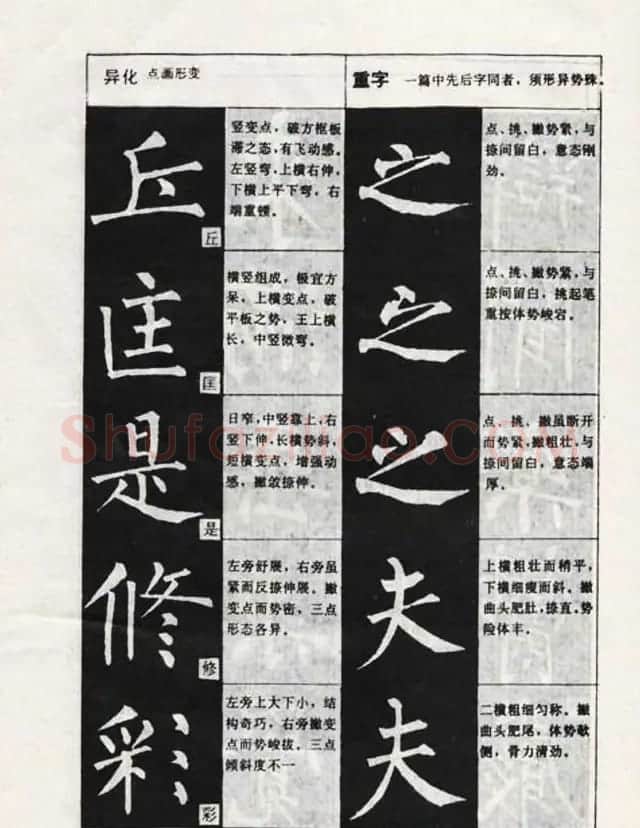 异化 点画形变
丘
丘
竖变点，破方框板
滞之态，有飞动感。
左竖弯，上横右伸，
下横上平下弯，右
端重顿。
匡
匡
横竖组成，极宜方
呆，上横变点，破
平板之势，王上横
长，中竖微弯。
是
是
日窄，中竖靠上，右
竖下伸，长横势斜，
短横变点，增强动
感，撇敛捺伸。
修
修
左旁舒展，右旁虽
紧而反捺伸展。撇
变点而势密，三点
形态各异。
彩
彩
左旁上大下小，结
构奇巧，右旁撇变
点而势峻拔。三点
倾斜度不一
重字 一篇中先后字同者，须形异势殊。
之
点、挑、撇势紧，与
捺间留白，意态刚
劲。
之
点、挑、撇势紧，与
捺间留白，挑起笔
重按体势峻宕。
之
点、挑、撇虽断开
而势紧，撇粗壮，与
捺间留白，意态端
厚。
夫
上横粗壮而稍平，
下横细瘦而斜。撇
曲头肥肚，捺直。势
险体丰。
夫
二横粗细匀称。撇
曲头肥尾，体势欹
侧，骨力清劲。
Shufazidiao.COM